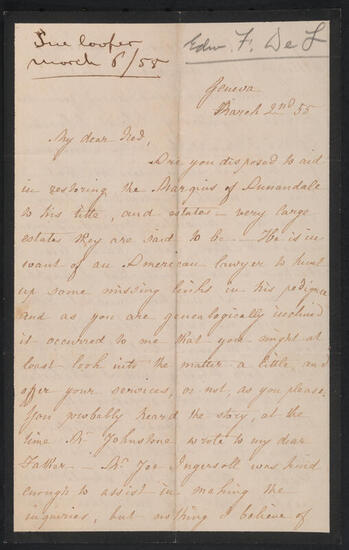 Sue Cooper
March 6/55
Edw. F. De L
Geneva
March 2nd 55
My dear Ned,
Are you disposed to aid
in restoring the Marquis of Annandale
to his title, and estates — very large
estates they are said to be — He is in
want of an American lawyer to hunt
up some missing links in his pedigree
and as you are genealogically inclined
it occurred to me that you might at
least look into the matter a little, and
offer your services, or not, as you please.
You probably heard the story, at the
time Mr Johnstone wrote to my dear
Father — Mr Joe Ingersoll was kind
enough to assist in making the
inquiries, but nothing I believe of